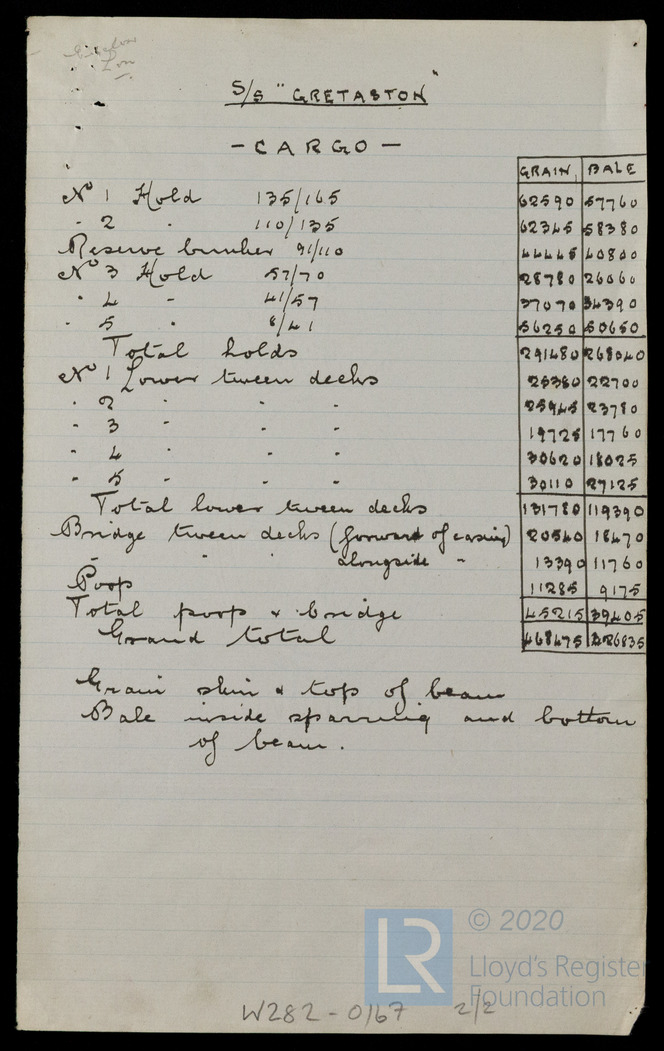 S/S "GRETASTON"
- CARGO -
GRAIN BALE
No 1 Hold 135/165 62590 57760
" 2 " 110/135 62345 58380
Reserve bunker 91/110 44445 40800
No 3 Hold 57/70 28780 26060
" 4 " 41/57 37070 34390
" 5 " 8/41 56250 50650
Total holds 291480 268040
No 1 Lower tween decks 25380 22700
" 2 " " " 25945 23780
" 3 " " " 19725 17760
" 4 " " " 30620 18025
" 5 " " " 30110 27125
Total lower tween decks 131780 119390
Bridge tween decks (forward of casing) 20540 18470
" " " alongside " 13390 11760
Poop 11285 9175
Total poop & bridge 45215 39405
Grand total 468475 426835
Grain skin & top of beam
Bale inside sparring and bottom
of beam.
LR
© 2020
Lloyd's Register
Foundation
W282-0167 2/2